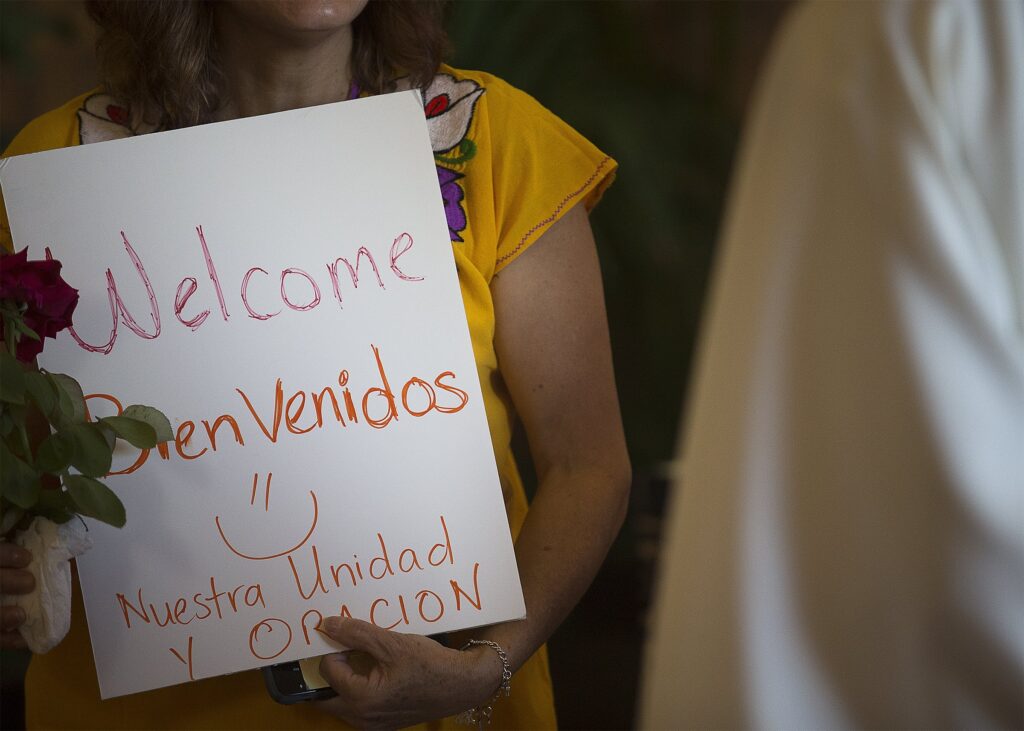 Welcome
BienVenidos
Nuestra Unidad
Y ORACION